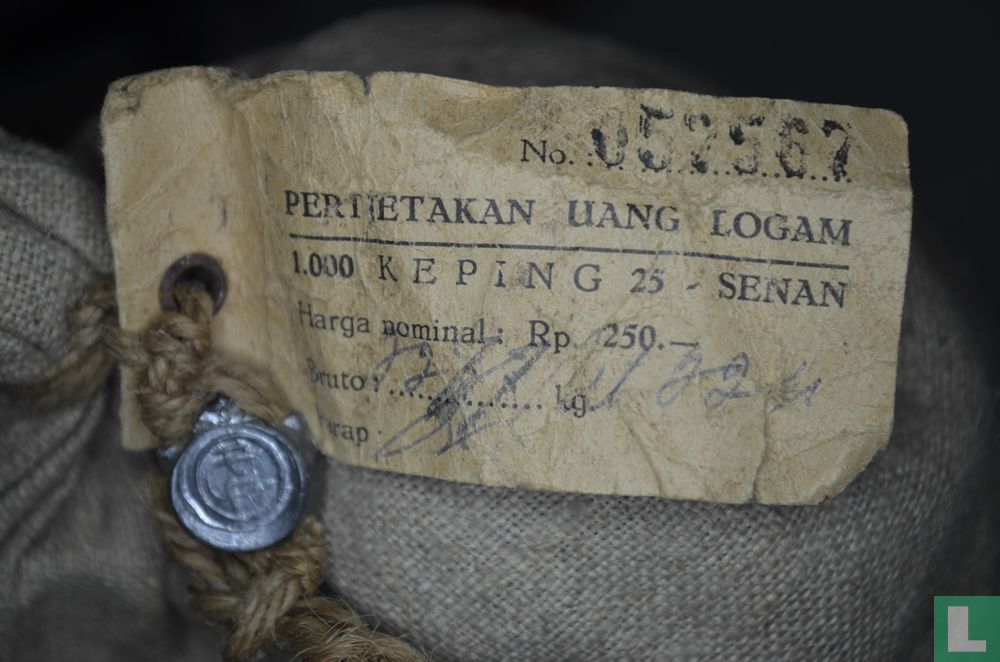 No. : 052567
PERTJETAKAN UANG LOGAM
1.000 KEPING 25 - SENAN
Harga nominal : Rp 250.—
Bruto : .............. kg
Parap :
L